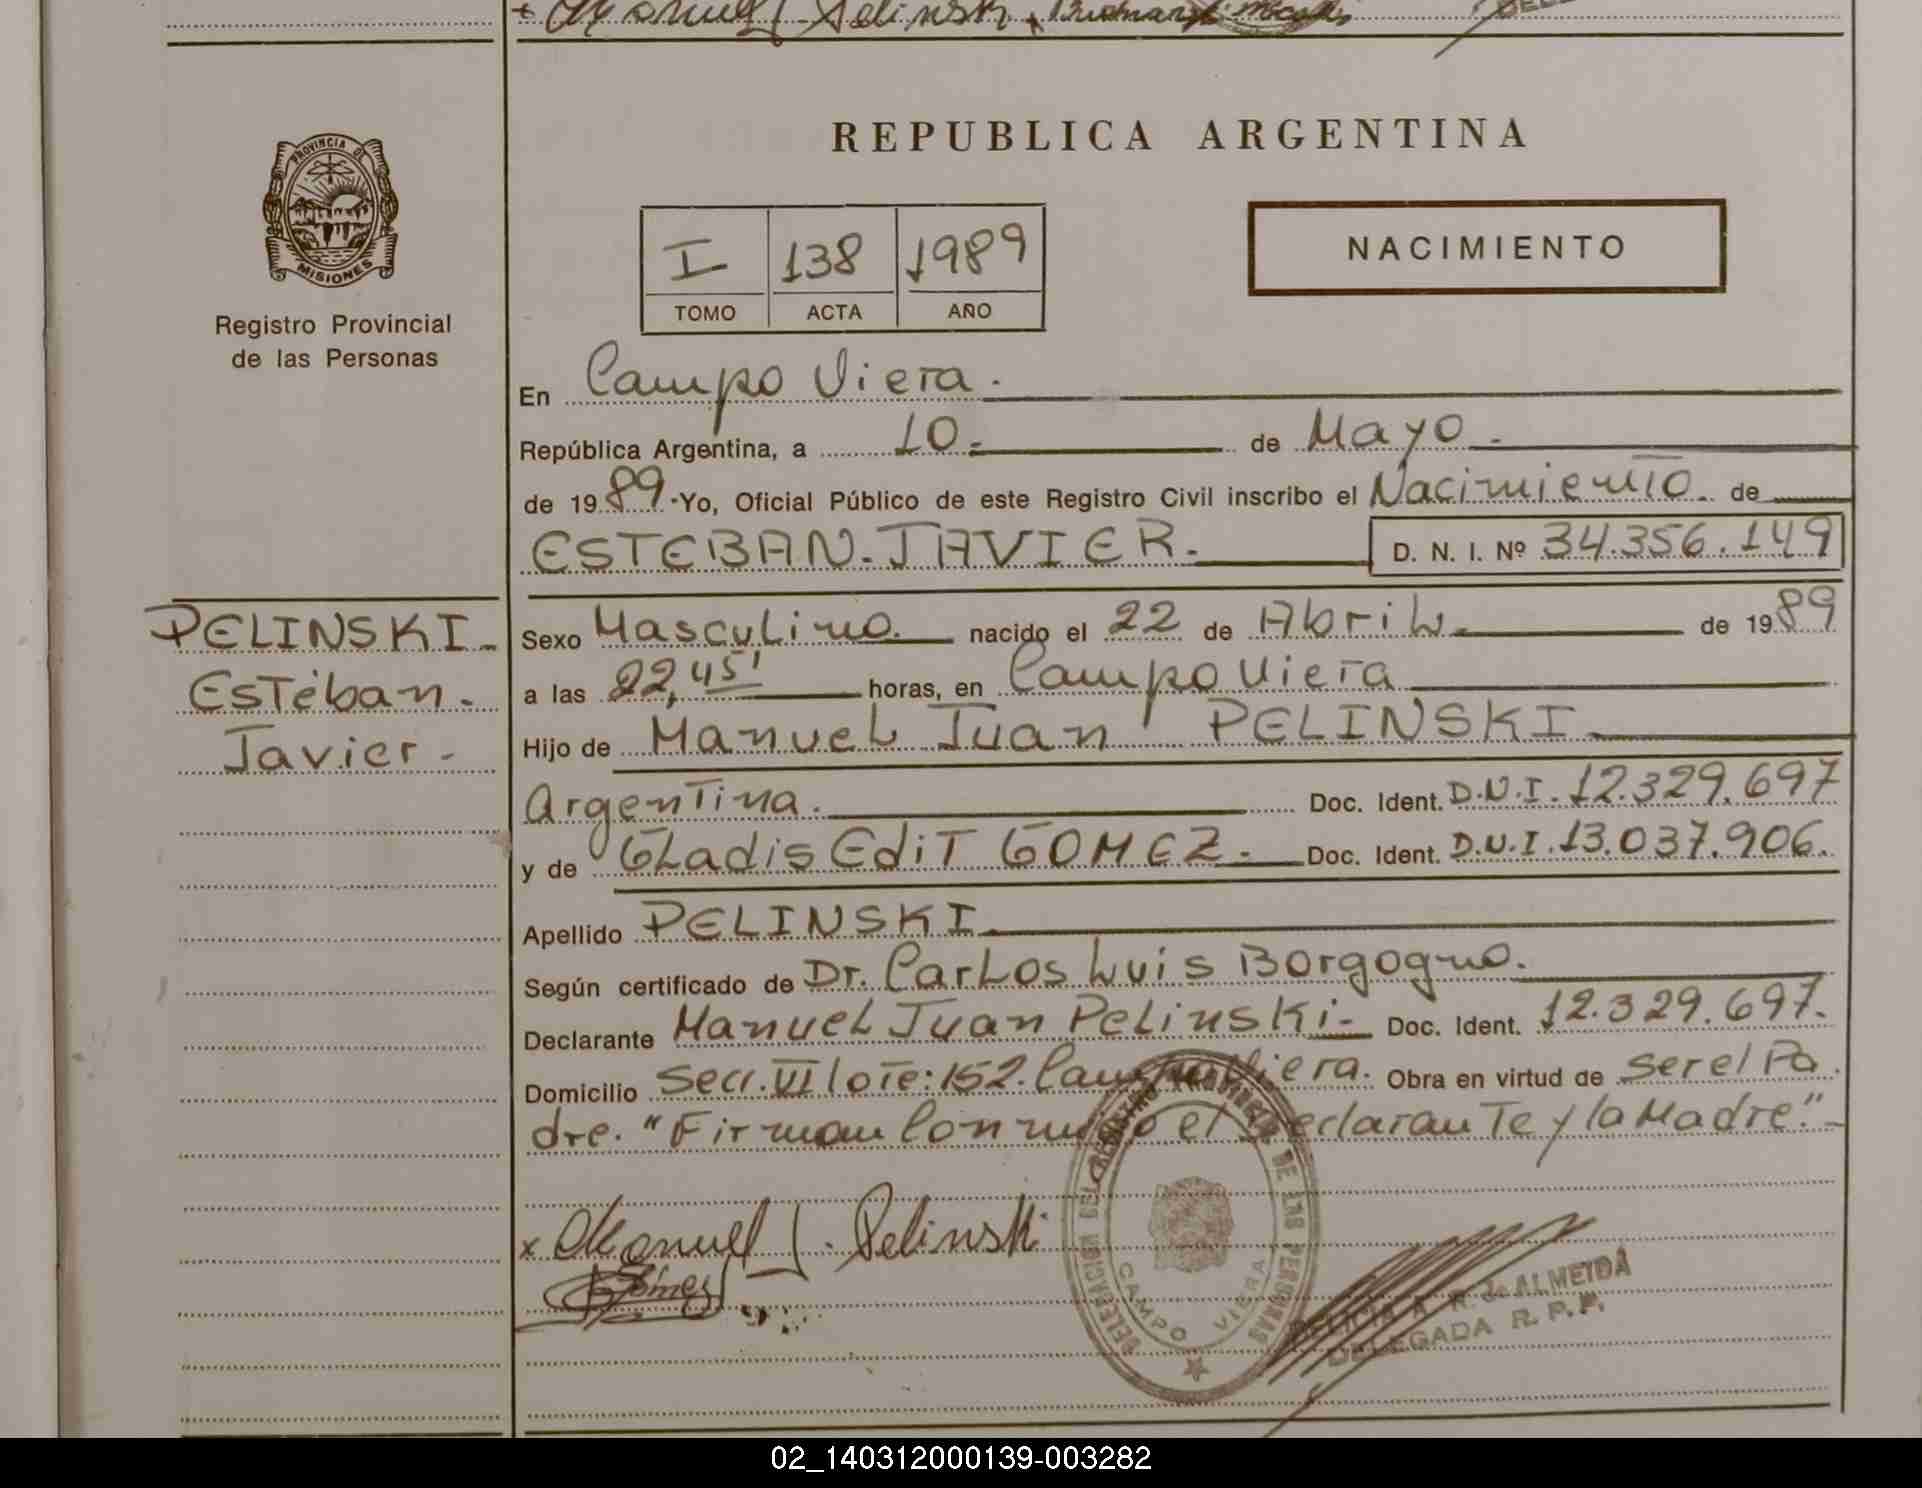 Manuel J. Pelinski
REPUBLICA ARGENTINA
PROVINCIA DE
MISIONES
Registro Provincial
de las Personas
I 138 1989
TOMO ACTA AÑO
NACIMIENTO
En Campo Viera.
República Argentina, a 10.- de Mayo.-
de 1989.-Yo, Oficial Público de este Registro Civil inscribo el Nacimiento. de
ESTEBAN-JAVIER.- D. N. I. Nº 34.356.149
PELINSKI-
Esteban-
Javier-
Sexo Masculino. nacido el 22 de Abril. de 1989
a las 22,45' horas, en Campo Viera
Hijo de Manuel Juan PELINSKI.
Argentina. Doc. Ident. D.N.I. 12.329.697
y de Gladis Edit GOMEZ.- Doc. Ident. D.N.I. 13.037.906.
Apellido PELINSKI.
Según certificado de Dr. Carlos Luis Borgogno.
Declarante Manuel Juan Pelinski.- Doc. Ident. 12.329.697.
Domicilio Secc. VI lote: 152. Campo Viera. Obra en virtud de ser el Pa
dre. "Firman conmigo el declarante y la Madre".-
x Manuel J. Pelinski
Gómez
DELEGACION DEL REGISTRO PROVINCIAL DE LAS PERSONAS
CAMPO VIERA
ALMEIDA
DELEGADA R. P. P.
02_140312000139-003282